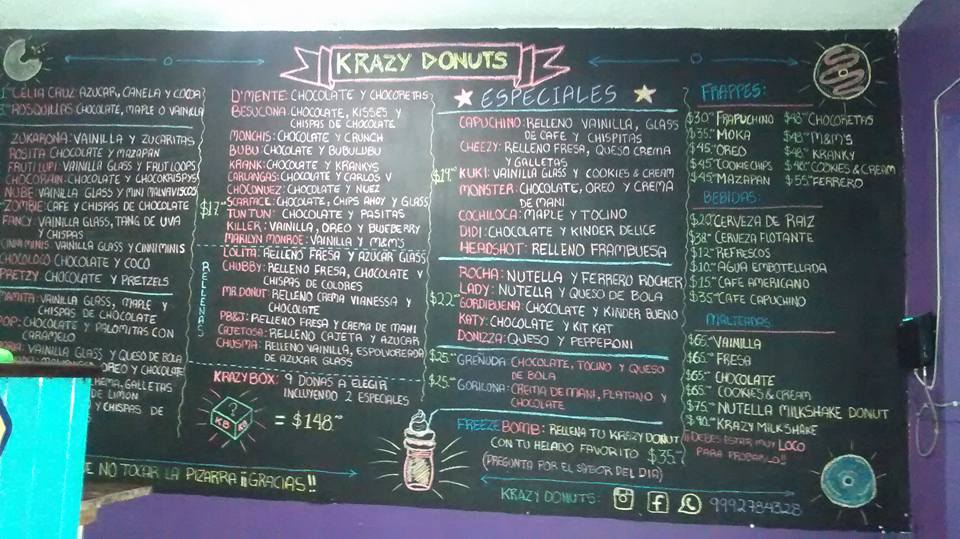 KRAZY DONUTS
CELIA CRUZ: AZUCAR, CANELA Y COCOA
ROSQUILLAS CHOCOLATE, MAPLE O VAINILLA
ZUKARONA: VAINILLA Y ZUCARITAS
ROSITA CHOCOLATE Y MAZAPAN
FRUTILUPI: VAINILLA GLASS Y FRUTI LOOPS
CHOCORAIN: CHOCOLATE Y CHOCOKRISPYS
NUBE VAINILLA GLASS Y MINI MALVAVISCOS
ZOMBIE: CAFE Y CHISPAS DE CHOCOLATE
FANCY VAINILLA GLASS, TANG DE UVA
Y CHISPAS
CINNIMINIS: VAINILLA GLASS Y CINNIMINIS
CHOCOLOCO CHOCOLATE Y COCO
PRETZY CHOCOLATE Y PRETZELS
VAINILLA GLASS, MAPLE Y
CHISPAS DE CHOCOLATE
CHOCOLATE Y PALOMITAS CON
CARAMELO
VAINILLA GLASS Y QUESO DE BOLA
OREO Y CHOCOLATE
CREMA, GALLETAS
DE LIMON
Y CHISPAS DE
NO TOCAR LA PIZARRA ¡¡GRACIAS!!
D'MENTE: CHOCOLATE Y CHOCORETAS
BESUCONA: CHOCOLATE, KISSES Y
CHISPAS DE CHOCOLATE
MONCHIS: CHOCOLATE Y CRUNCH
BUBU: CHOCOLATE Y BUBULUBU
KRANK: CHOCOLATE Y KRANKYS
CARLANGAS: CHOCOLATE Y CARLOS V
CHOCONUEZ: CHOCOLATE Y NUEZ
$17.00 SCARFACE: CHOCOLATE, CHIPS AHOY Y GLASS
TUN TUN: CHOCOLATE Y PASITAS
KILLER: VAINILLA, OREO Y BLUEBERRY
MARILYN MONROE: VAINILLA Y M&M'S
RELLENAS
LOLITA: RELLENO FRESA Y AZUCAR GLASS
CHUBBY: RELLENO FRESA, CHOCOLATE Y
CHISPAS DE COLORES
MR. DONUT: RELLENO CREMA VIANESSA Y
CHOCOLATE
PB&J: RELLENO FRESA Y CREMA DE MANI
CAJETOSA: RELLENO CAJETA Y AZUCAR
CHUSMA: RELLENO VAINILLA, ESPOLVOREADA
DE AZUCAR GLASS
KRAZY BOX: 9 DONAS A ELEGIR
INCLUYENDO 2 ESPECIALES
? KB KB = $148.00
ESPECIALES
CAPUCHINO: RELLENO VAINILLA, GLASS
DE CAFE Y CHISPITAS
CHEEZY: RELLENO FRESA, QUESO CREMA
Y GALLETAS
$19.00 KUKI: VAINILLA GLASS Y COOKIES & CREAM
MONSTER: CHOCOLATE, OREO Y CREMA
DE MANI
COCHILOCA: MAPLE Y TOCINO
DIDI: CHOCOLATE Y KINDER DELICE
HEADSHOT: RELLENO FRAMBUESA
ROCHA: NUTELLA Y FERRERO ROCHER
LADY: NUTELLA Y QUESO DE BOLA
$22.00 GORDIBUENA: CHOCOLATE Y KINDER BUENO
KATY: CHOCOLATE Y KIT KAT
DONIZZA: QUESO Y PEPPERONI
$25.00 GREÑUDA CHOCOLATE, TOCINO Y QUESO
DE BOLA
$25.00 GORILONA: CREMA DE MANI, PLATANO Y
CHOCOLATE
FREEZE BOMB: RELLENA TU KRAZY DONUT
CON TU HELADO FAVORITO $35.00
(PREGUNTA POR EL SABOR DEL DIA)
KRAZY DONUTS: 9992784328
FRAPPES:
$30.00 FRAPUCHINO $48.00 CHOCORETAS
$35.00 MOKA $48.00 M&M'S
$45.00 OREO $48.00 KRANKY
$45.00 COOKIECHIPS $48.00 COOKIES & CREAM
$45.00 MAZAPAN $55.00 FERRERO
BEBIDAS:
$20.00 CERVEZA DE RAIZ
$38.00 CERVEZA FLOTANTE
$12.00 REFRESCOS
$10.00 AGUA EMBOTELLADA
$15.00 CAFE AMERICANO
$35.00 CAFE CAPUCHINO
MALTEADAS:
$65.00 VAINILLA
$65.00 FRESA
$65.00 CHOCOLATE
$65.00 COOKIES & CREAM
$75.00 NUTELLA MILKSHAKE DONUT
$90.00 KRAZY MILKSHAKE
¡¡DEBES ESTAR MUY LOCO
PARA PROBARLO!!